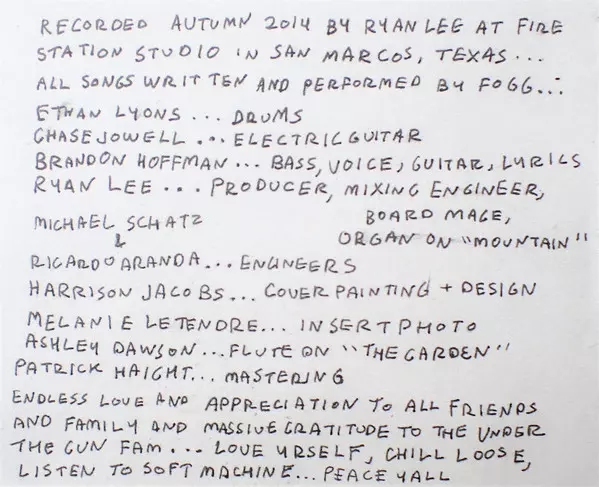 RECORDED AUTUMN 2014 BY RYAN LEE AT FIRE
STATION STUDIO IN SAN MARCOS, TEXAS...
ALL SONGS WRITTEN AND PERFORMED BY FOGG...
ETHAN LYONS... DRUMS
CHASE JOWELL... ELECTRIC GUITAR
BRANDON HOFFMAN... BASS, VOICE, GUITAR, LYRICS
RYAN LEE... PRODUCER, MIXING ENGINEER,
BOARD MAGE,
ORGAN ON "MOUNTAIN"
MICHAEL SCHATZ
&
RICARDO ARANDA... ENGINEERS
HARRISON JACOBS... COVER PAINTING + DESIGN
MELANIE LETENDRE... INSERT PHOTO
ASHLEY DAWSON... FLUTE ON "THE GARDEN"
PATRICK HAIGHT... MASTERING
ENDLESS LOVE AND APPRECIATION TO ALL FRIENDS
AND FAMILY AND MASSIVE GRATITUDE TO THE UNDER
THE GUN FAM... LOVE YRSELF, CHILL LOOSE,
LISTEN TO SOFT MACHINE... PEACE YALL